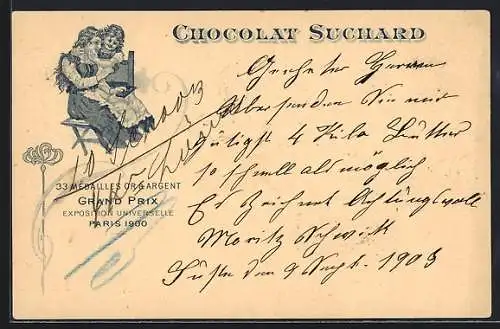 CHOCOLAT SUCHARD
Geehrter Herren
Übersenden Sie mir
gütigst 4 Kilo Bütter
so schnell als möglich.
Es zeichnet Achtungsvoll
Moritz Schwith
den 9 Sept. 1903
10
33 MÉDAILLES OR & ARGENT
GRAND PRIX
EXPOSITION UNIVERSELLE
PARIS 1900